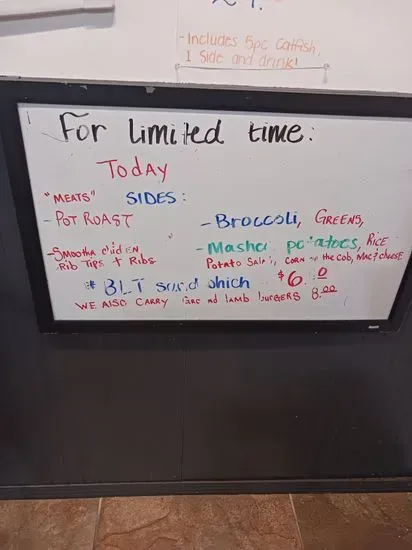 -Includes 5pc Catfish,
1 Side and drink!
For limited time:
Today
"MEATS" SIDES:
- POT ROAST - Broccoli, GREENS,
- Mashd potatoes, RICE
Rib Tips + Ribs Potato Salad, CORN on the COB, Mac & cheese
* BLT sandwhich $6.
WE ALSO CARRY and lamb burgers 8.00